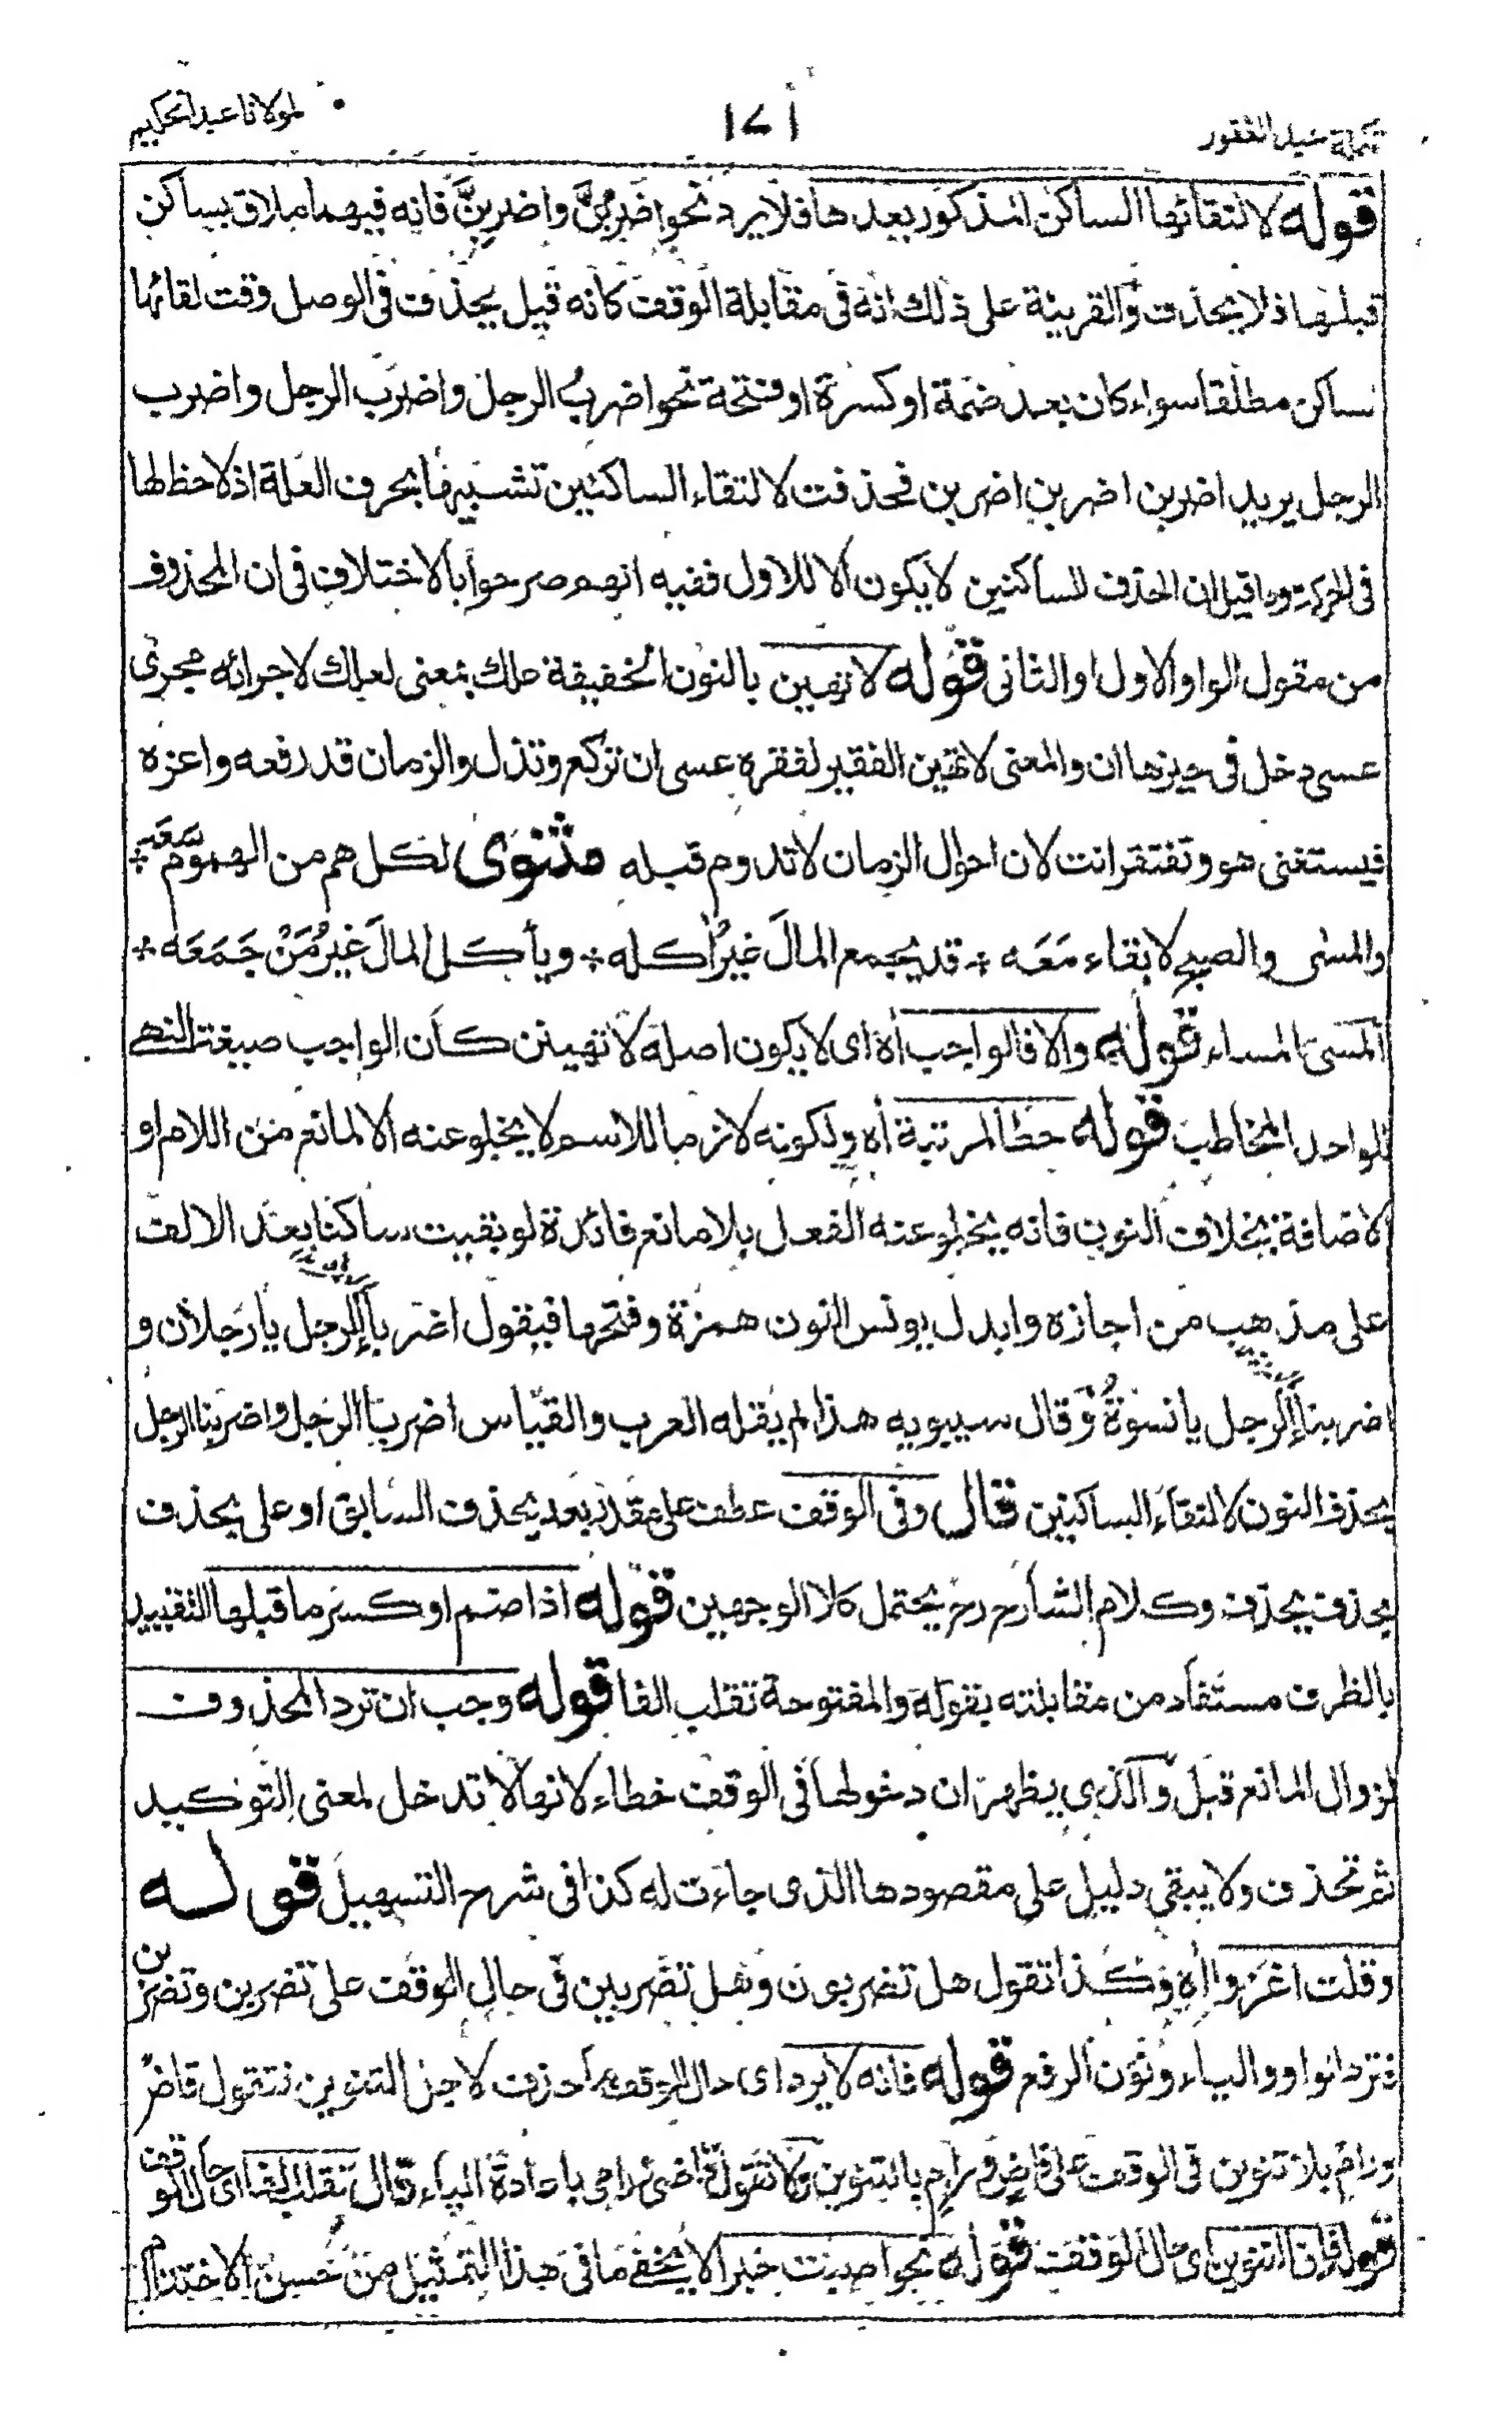 تكملة عبد الغفور
١٧١
لمولانا عبد الحكيم
قوله لالتقائها الساكن المذكور بعدها فلا يرد نحو اضربُنَّ واضربِنَّ فانه فيهما ملاق بساكن
قبلها اذ لا يحذف والقرينة على ذلك انه فى مقابلة الوقف كانه قيل يحذف فى الوصل وقت لقائها
لساكن مطلقا سواء كان بعد ضمة او كسرة او فتحة نحو اضربُ الرجل واضربِ الرجل واضرب
الرجل يريد اضربن اضربن اضربن فحذفت لالتقاء الساكنين تشبيها بحرف العلة اذ لا حظ لها
فى الحركة وما قيل ان الحذف للساكنين لا يكون الا للاول ففيه انهم صرحوا بالاختلاف فى ان المحذوف
من مقول الواو الاول او الثانى قوله لا تهين بالنون الخفيفة علك بمعنى لعلك لاجرائه مجرى
عسى دخل فى حيزها ان والمعنى لا تهين الفقير لفقره عسى ان تركع وتذل والزمان قد رفعه واعزه
فيستغنى هو وتفتقر انت لان احوال الزمان لا تدوم قبله مثنوى لكل هم من الهموم سَعَه
والمسى والصبح لا بقاء مَعَه قد يجمع المالَ غيرُ اكله ويأكل المالَ غيرُ مَنْ جَمَعَه
المسى المساء قوله والا فالواجب اه اى لا يكون اصله لا تهينن كان الواجب صيغة النهى
للواحد المخاطب قوله حطا لمرتبة اه ولكونه لازما للاسم لا يخلو عنه الا لمانع من اللام او
الاضافة بخلاف النون فانه يخلو عنه الفعل بلا مانع فائدة لو بقيت ساكنا بعد الالف
على مذهب من اجازه وابدل يونس النون همزة وفتحها فيقول اضرباأ الرجل يا رجلان و
اضربناأ الرجل يا نسوة وقال سيبويه هذا لم يقله العرب والقياس اضربا الرجل واضربنا الرجل
بحذف النون لالتقاء الساكنين قال وفى الوقف عطف على مقدر بعد يحذف السابق او على يحذف
يحذف يحذف وكلام الشارح رح يحتمل كلا الوجهين قوله اذا ضم او كسر ما قبلها التقييد
بالظرف مستفاد من مقابلته بقوله والمفتوحة تقلب الفا قوله وجب ان ترد المحذوف
لزوال المانع قبل والذى يظهر ان دخولها فى الوقف خطاء لانها لا تدخل لمعنى التوكيد
ثم تحذف ولا يبقى دليل على مقصودها الذى جاءت له كذا فى شرح التسهيل قوله
وقلت اغزوا اه وكذا تقول هل تضربون وهل تضربين فى حال الوقف على تضربن وتضربن
فترد الواو والياء ونون الرفع قوله فانه لا يرد اى حال الوقف ما حذف لاجل التنوين فتقول قاضْ
ورامْ بلا تنوين فى الوقف على قاضٍ ورامٍ بالتنوين ولا تقول قاضى رامى باعادة الياء قال تقلب الفا اى حال الوقف
قوله فان التنوين اى حال الوقف قوله نحو اصبت خيرا لا يخفى ما فى هذا التمثيل من حسن الاختتام